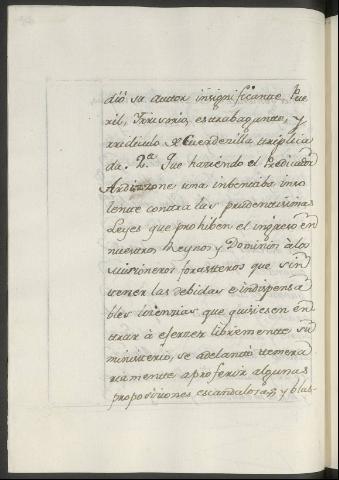 dió su autor insignificante, Pue
ril, Irrisorio, extrabagante, y
rridiculo de Cuerdecilla ttriplica
da. 2.ª Que haziendo el Predicador
Ardizzone una inbentiba inso
lente contra las prudentissimas
Leyes que prohiben el ingreso en
nuestros Reynos y Dominios à los
Missioneros forastteros que sin
ttener las debidas e indispensa
bles lizenzias que quisiesen en
ttrar à ejerzer libremente su
ministerio, se adelantò ttemera
riamente a proferir algunas
proposiziones escandalosas, y blas-